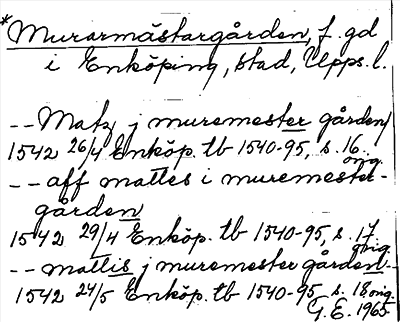 *Murarmästargården, f. gd
i Enköping, stad, Upps. l.
-- Matz j muremester gården
1542 26/4 Enköp. tb 1540-95, s. 16 orig.
-- aff mattes i muremester-
gården
1542 29/4 Enköp. tb 1540-95, s. 17 orig.
-- mattis j muremester gården --
1542 24/5 Enköp. tb 1540-95 s. 18 orig.
G. E. 1965